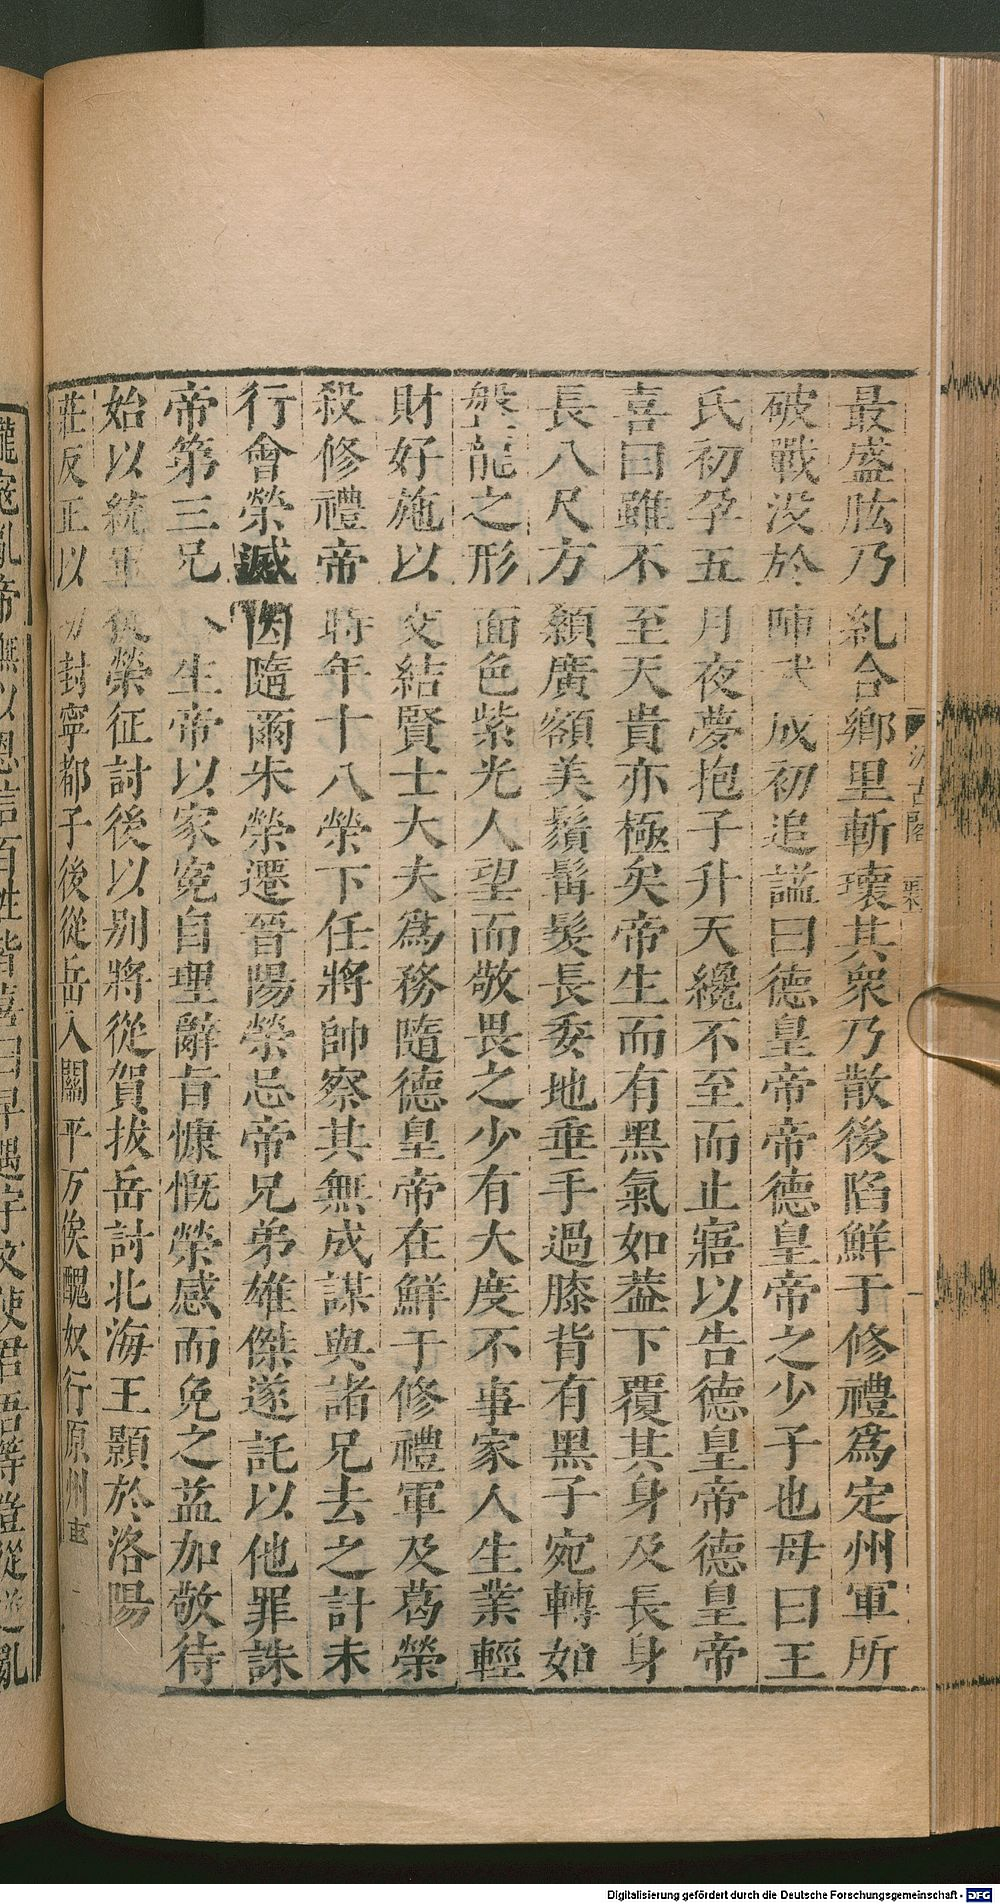 最盛肱乃糺合鄉里斬瓌其衆乃散後陷鮮于修禮為定州軍所
破戰沒於陣武成初追諡曰德皇帝帝德皇帝之少子也母曰王
氏初孕五月夜夢抱子升天纔不至而止寤以告德皇帝德皇帝
喜曰雖不至天貴亦極矣帝生而有黑氣如葢下覆其身及長身
長八尺方顙廣額美鬚髯髮長委地垂手過膝背有黑子宛轉如
盤龍之形面色紫光人望而敬畏之少有大度不事家人生業輕
財好施以交結賢士大夫為務隨德皇帝在鮮于修禮軍及葛榮
殺修禮帝時年十八榮下任將帥察其無成謀與諸兄去之計未
行會榮滅因隨爾朱榮遷晉陽榮忌帝兄弟雄傑遂託以他罪誅
帝第三兄生帝以家冤自理辭旨慷慨榮感而免之益加敬待
始以統軍從榮征討後以別將從賀拔岳討北海王顥於洛陽
莊反正以功封寧都子後從岳入關平万俟醜奴行原州事
汲古閣
隴寇亂帝撫以恩信百姓皆喜曰早遇宇文使君吾等豈從逆亂
Digitalisierung gefördert durch die Deutsche Forschungsgemeinschaft - DFG